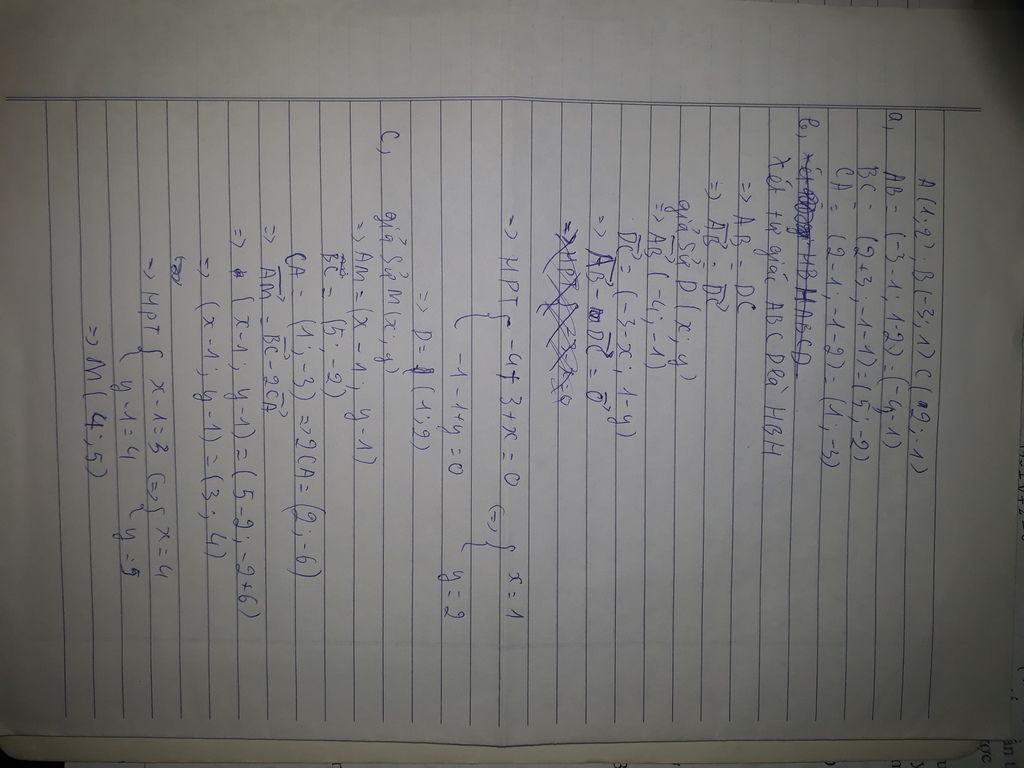 A(1;2), B(-3;1) C(2;-1)
a, AB = (-3-1; 1-2) = (-4;-1)
BC = (2+3; -1-1) = (5;-2)
CA = (2-1; -1-2) = (1;-3)
b,
Xét tứ giác ABCD là HBH
=> AB = DC
=> AB = DC
giả sử D(x;y)
=> AB (-4;-1)
DC = (-3-x; 1-y)
=> AB - DC = 0
=> HPT { -4+3+x=0 <=> { x=1
-1-1+y=0 y=2
=> D = (1;2)
c, giả sử M(x;y)
=> AM = (x-1; y-1)
BC = (5;-2)
CA = (1;-3) => 2CA = (2;-6)
=> AM = BC-2CA
=> (x-1; y-1) = (5-2; -2+6)
=> (x-1; y-1) = (3; 4)
=> HPT { x-1=3 <=> { x=4
y-1=4 y=5
=> M (4;5)